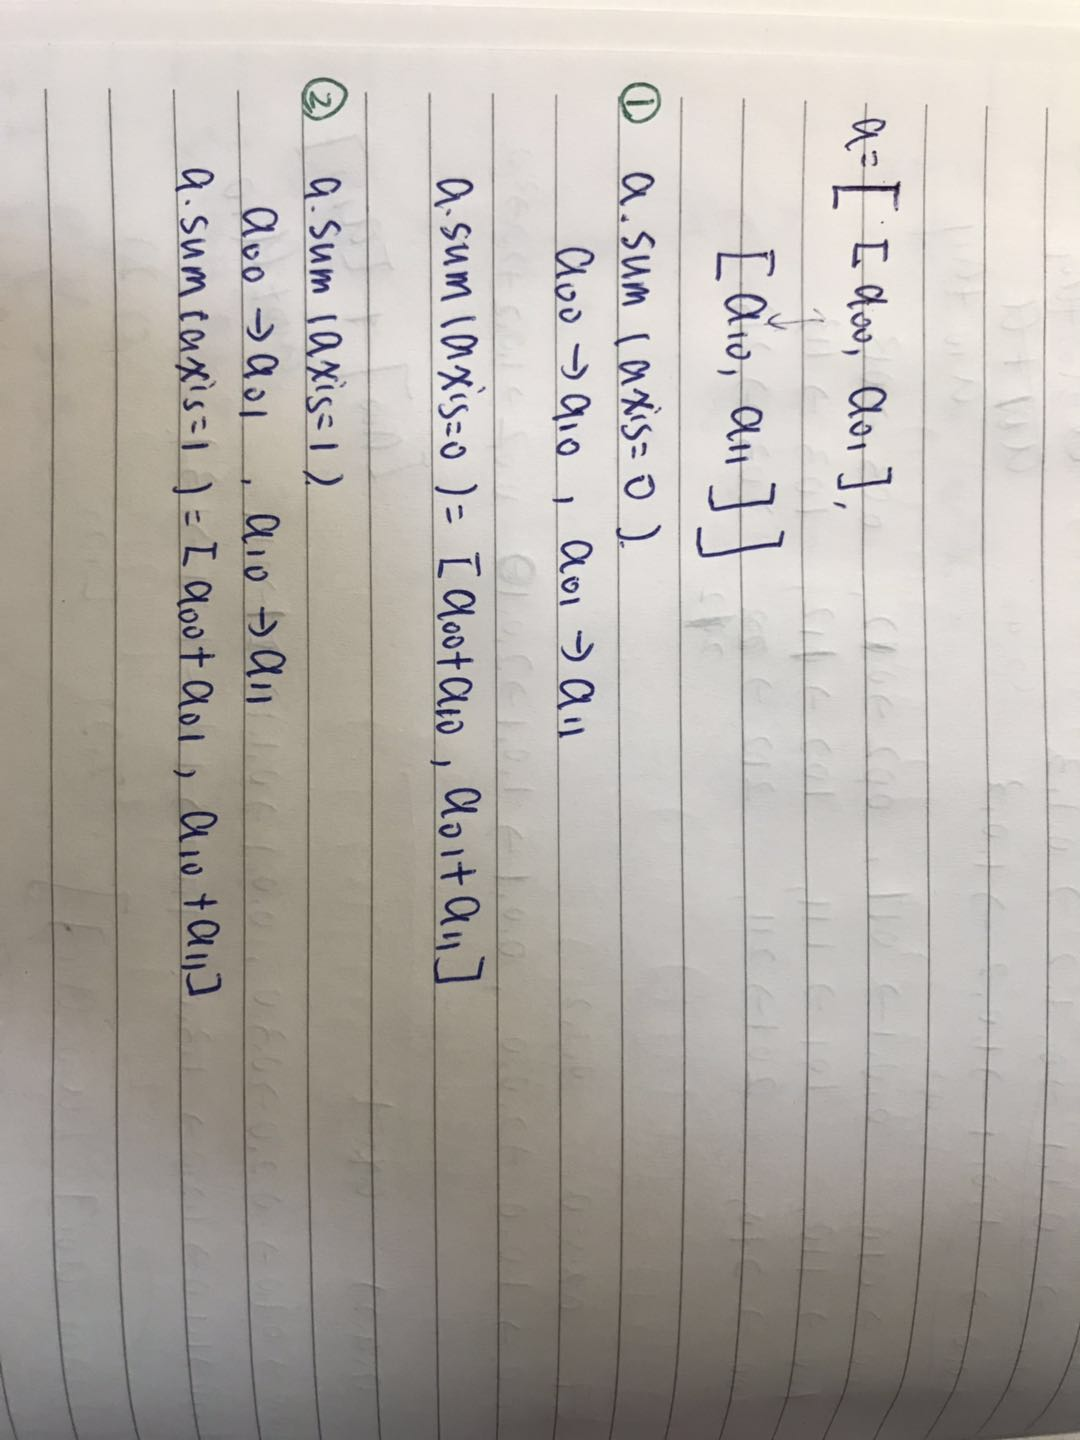 a=[ [a00, a01],
[a10, a11]]
① a.sum(axis=0).
a00→a10, a01→a11
a.sum(axis=0)=[a00+a10, a01+a11]
② a.sum(axis=1)
a00→a01, a10→a11
a.sum(axis=1)=[a00+a01, a10+a11]